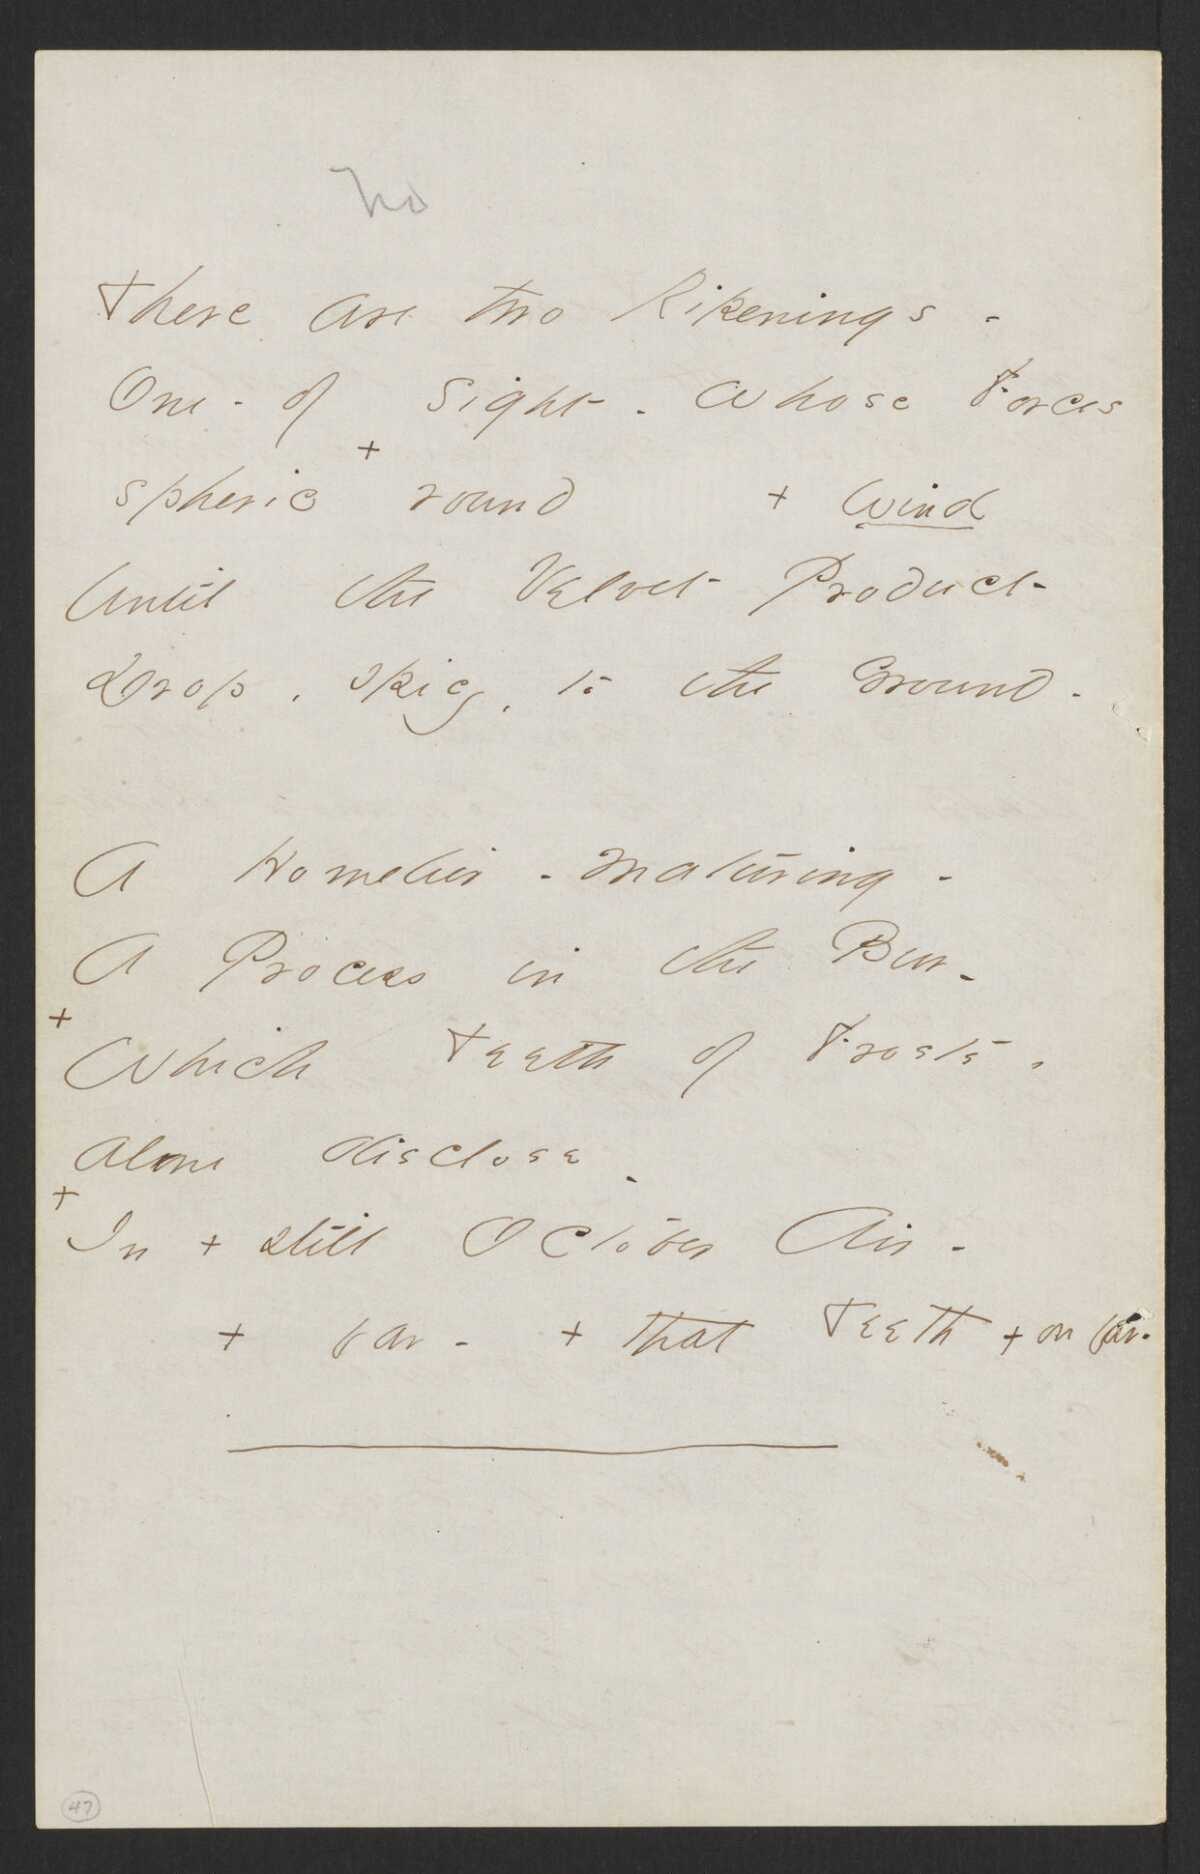 no
There are two Ripenings -
One - of Sight - Whose Forces
spheric + round + wind
Until the Velvet Product
Drop, spicy, to the Ground -
A Homelier - maturing -
A Process in the Bur -
+ Which Teeth of Frosts,
alone disclose -
+ In + still October Air -
+ far - + that Teeth + on far -
47